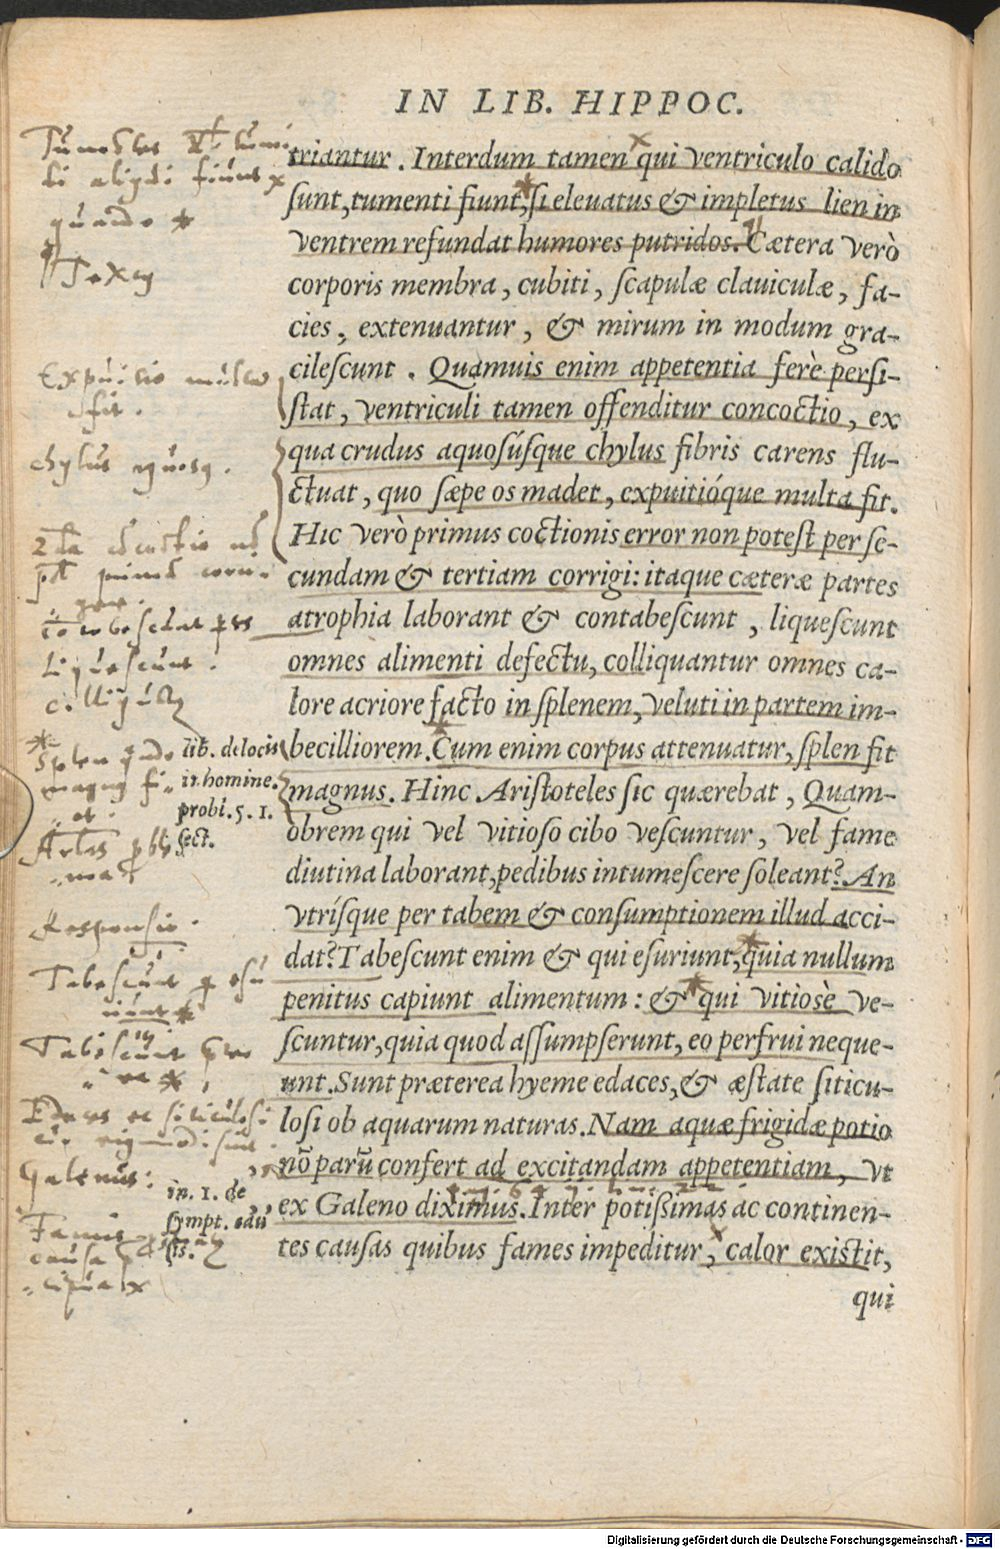 IN LIB. HIPPOC.
triantur. Interdum tamen qui ventriculo calido
ſunt, tumenti fiunt, ſi eleuatus & impletus lien in
ventrem refundat humores putridos. Cætera verò
corporis membra, cubiti, ſcapulæ clauiculæ, fa-
cies, extenuantur, & mirum in modum gra-
cileſcunt. Quamuis enim appetentia ferè perſi-
ſtat, ventriculi tamen offenditur concoctio, ex
qua crudus aquoſúſque chylus fibris carens flu-
ctuat, quo ſæpe os madet, expuitióque multa fit.
Hic verò primus coctionis error non poteſt per ſe-
cundam & tertiam corrigi: itaque cæteræ partes
atrophia laborant & contabeſcunt, liqueſcunt
omnes alimenti defectu, colliquantur omnes ca-
lore acriore facto in ſplenem, veluti in partem im-
becilliorem. Cum enim corpus attenuatur, ſplen fit
magnus. Hinc Ariſtoteles ſic quærebat, Quam-
obrem qui vel vitioſo cibo veſcuntur, vel fame
diutina laborant, pedibus intumeſcere ſoleant? An
vtríſque per tabem & conſumptionem illud acci-
dat? Tabeſcunt enim & qui eſuriunt, quia nullum
penitus capiunt alimentum: & qui vitioſè ve-
ſcuntur, quia quod aſſumpſerunt, eo perfrui neque-
unt. Sunt præterea hyeme edaces, & æſtate ſiticu-
loſi ob aquarum naturas. Nam aquæ frigidæ potio
nō parū confert ad excitandam appetentiam, vt
ex Galeno diximus. Inter potiſſimas ac continen-
tes cauſas quibus fames impeditur, calor exiſtit,
qui
quando *
Expuitio multa
fit.
chylus aquosꝫ.
Liquescunt.
Splen
lib. de locis
in homine.
probl. 5. 1.
ſect.
Responsio.
Tabescunt
Tabescunt
Edaces et siticulosi
Galenus:
in. 1. de
ſympt. cau
ſis.
Famis
causa